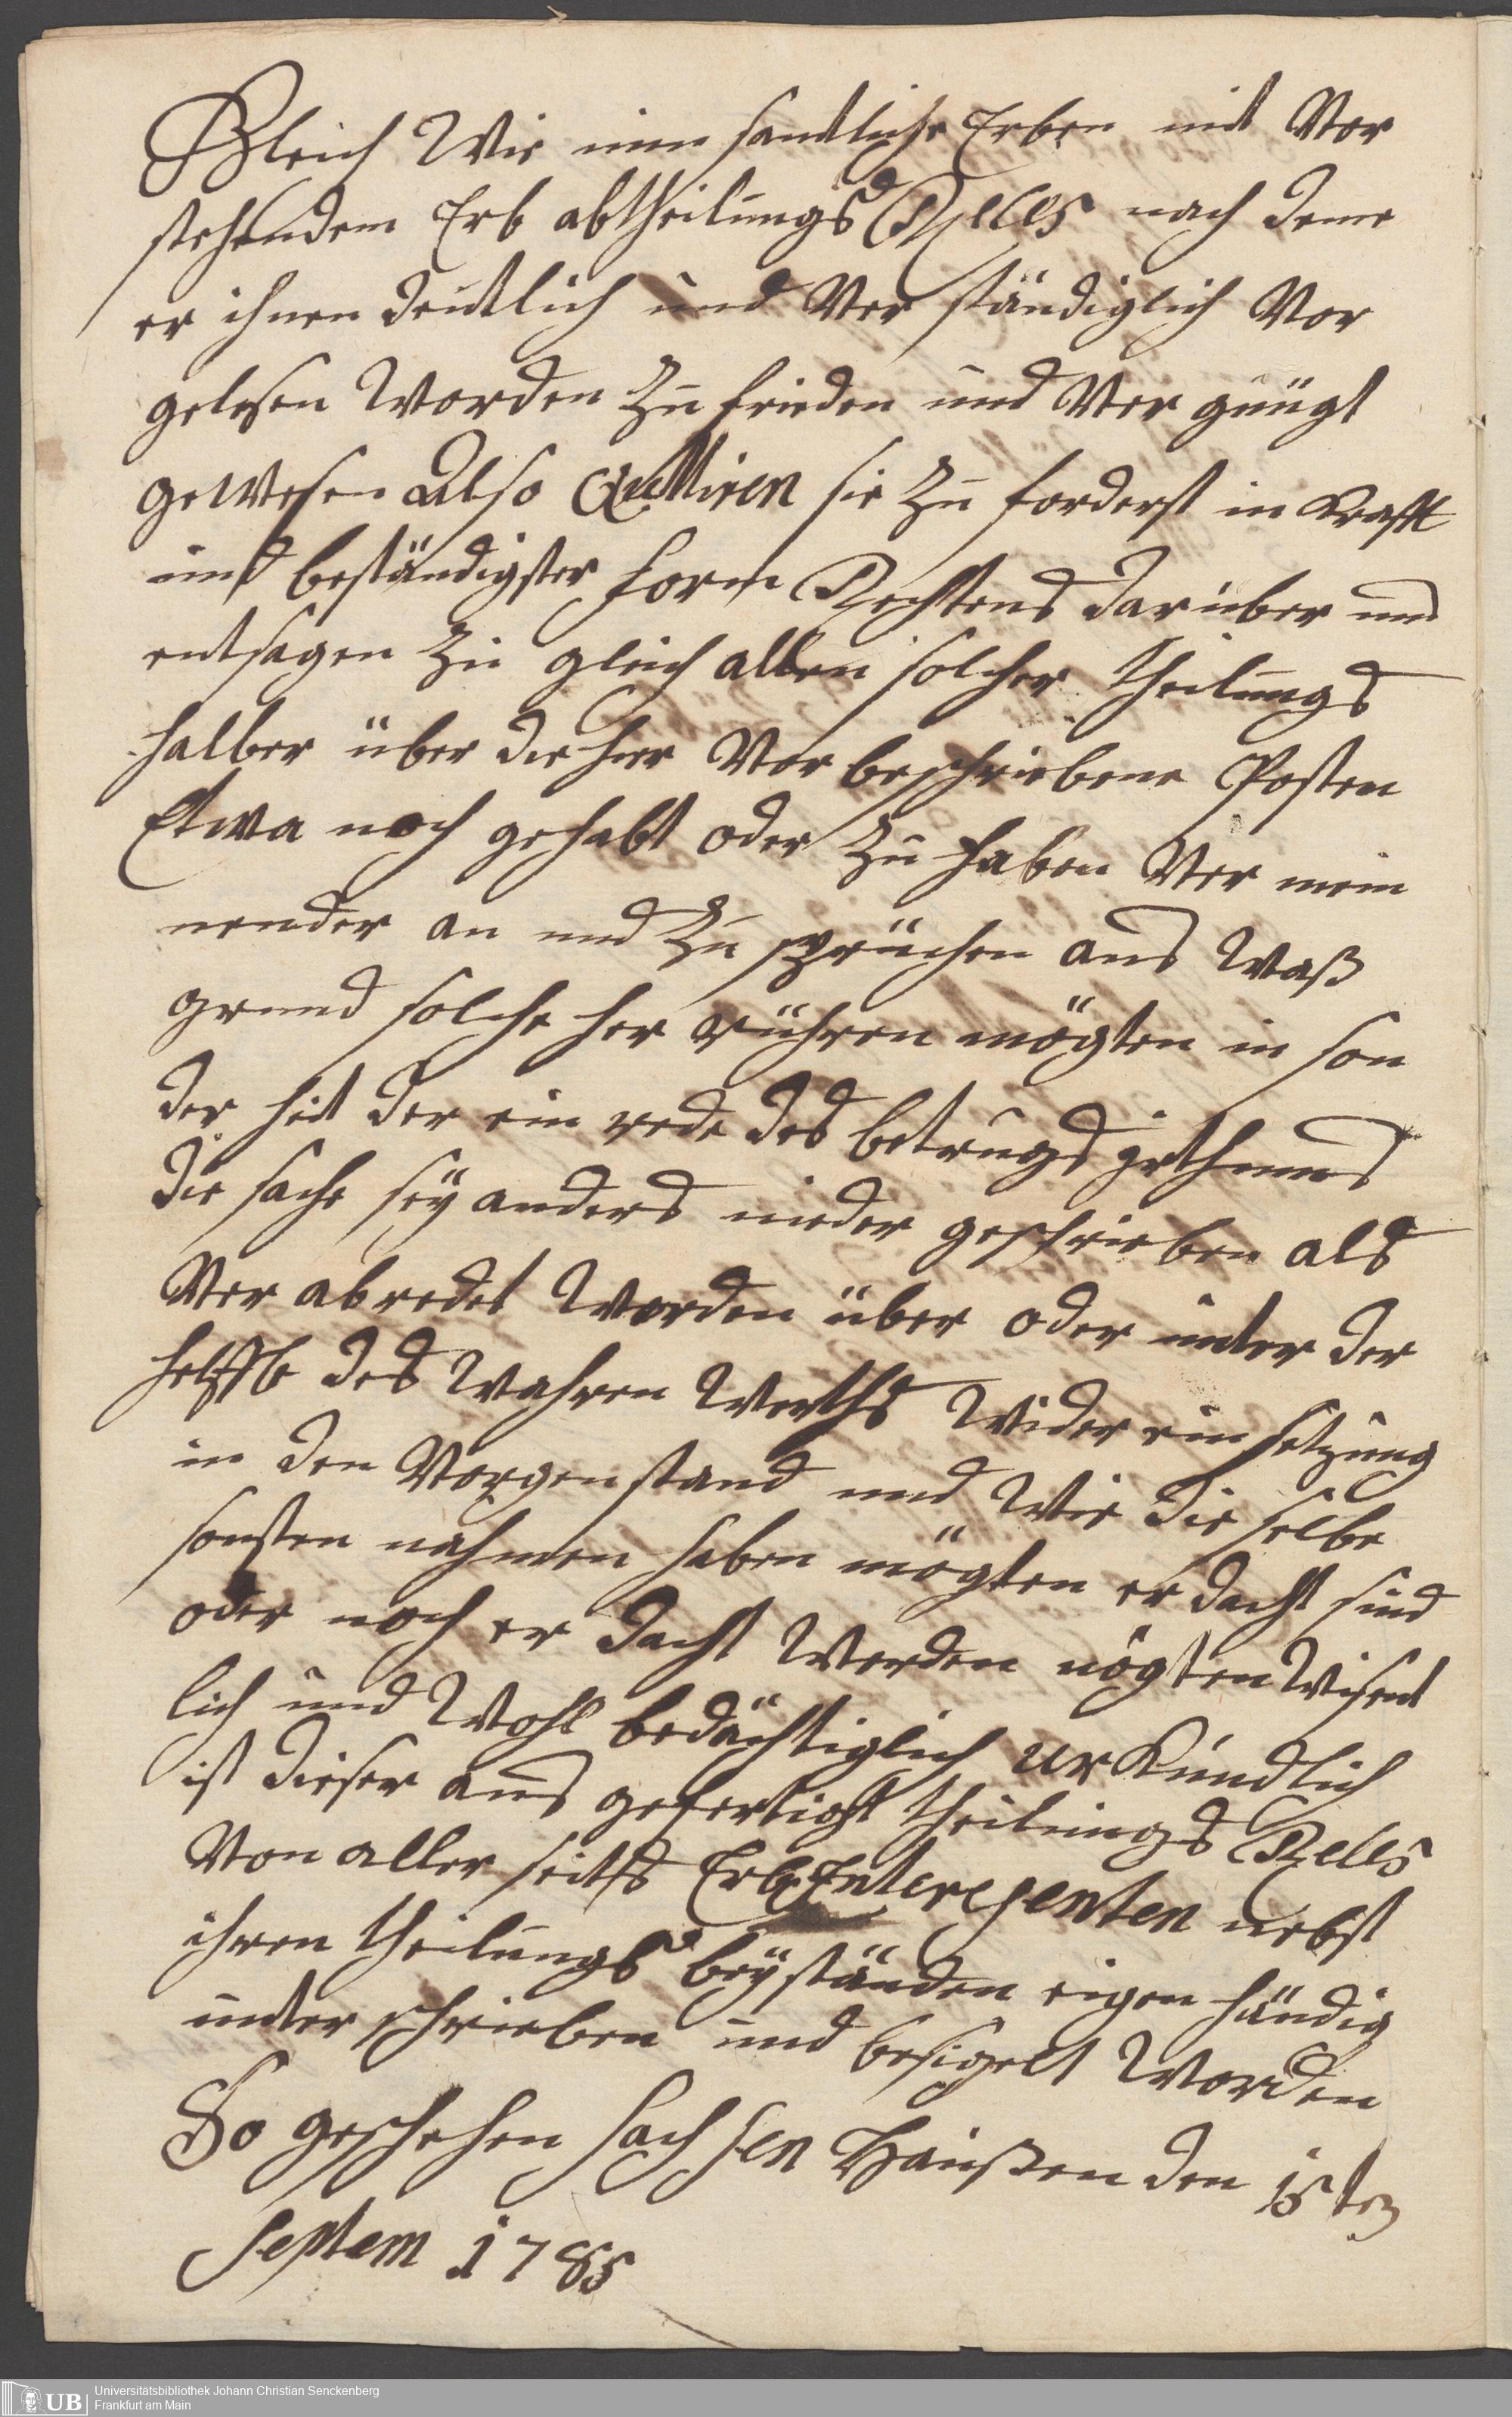 Gleich Wir nun samtliche Erben mit Vor
stehendem Erb abtheilungs Rezess nach deme
er ihnen deutlich und Ver ständiglich Vor
gelesen Worden Zu frieden und Ver gnügt
gewesen Also Quttiren sie Zu forderst in Krafft
und beständigster form Rechtens darüber und
entsagen Zu gleich allen solcher theilungs
halber über die hier Vor beschriebene Posten
Etwa noch gehabt oder Zu haben Ver mein
nender an und Zu sprüchen aus Waß
grund solche her rühren mögten in son
der heit der ein rede des betrugs irthums
die sache seÿ anders nieder geschrieben als
Ver abredet Worden über oder unter der
helffte des Wahren Werths Wider ein setzung
in den Vorgen stand und Wie die selbe
sonsten nahmen haben mögten er dacht sind
oder noch er dacht Werden mögten Wisent
lich und Wohl bedächtiglich Ur Kundlich
ist dieser aus gefertigt theilungs Rezess
Von aller seits Erb Interesenten nebst
ihren theilungs beÿständen eigen händig
unter schrieben und besigelt Worden
So geschehen Sachsen Haußen den 15ten
Septem 1785
Universitätsbibliothek Johann Christian Senckenberg
UB
Frankfurt am Main